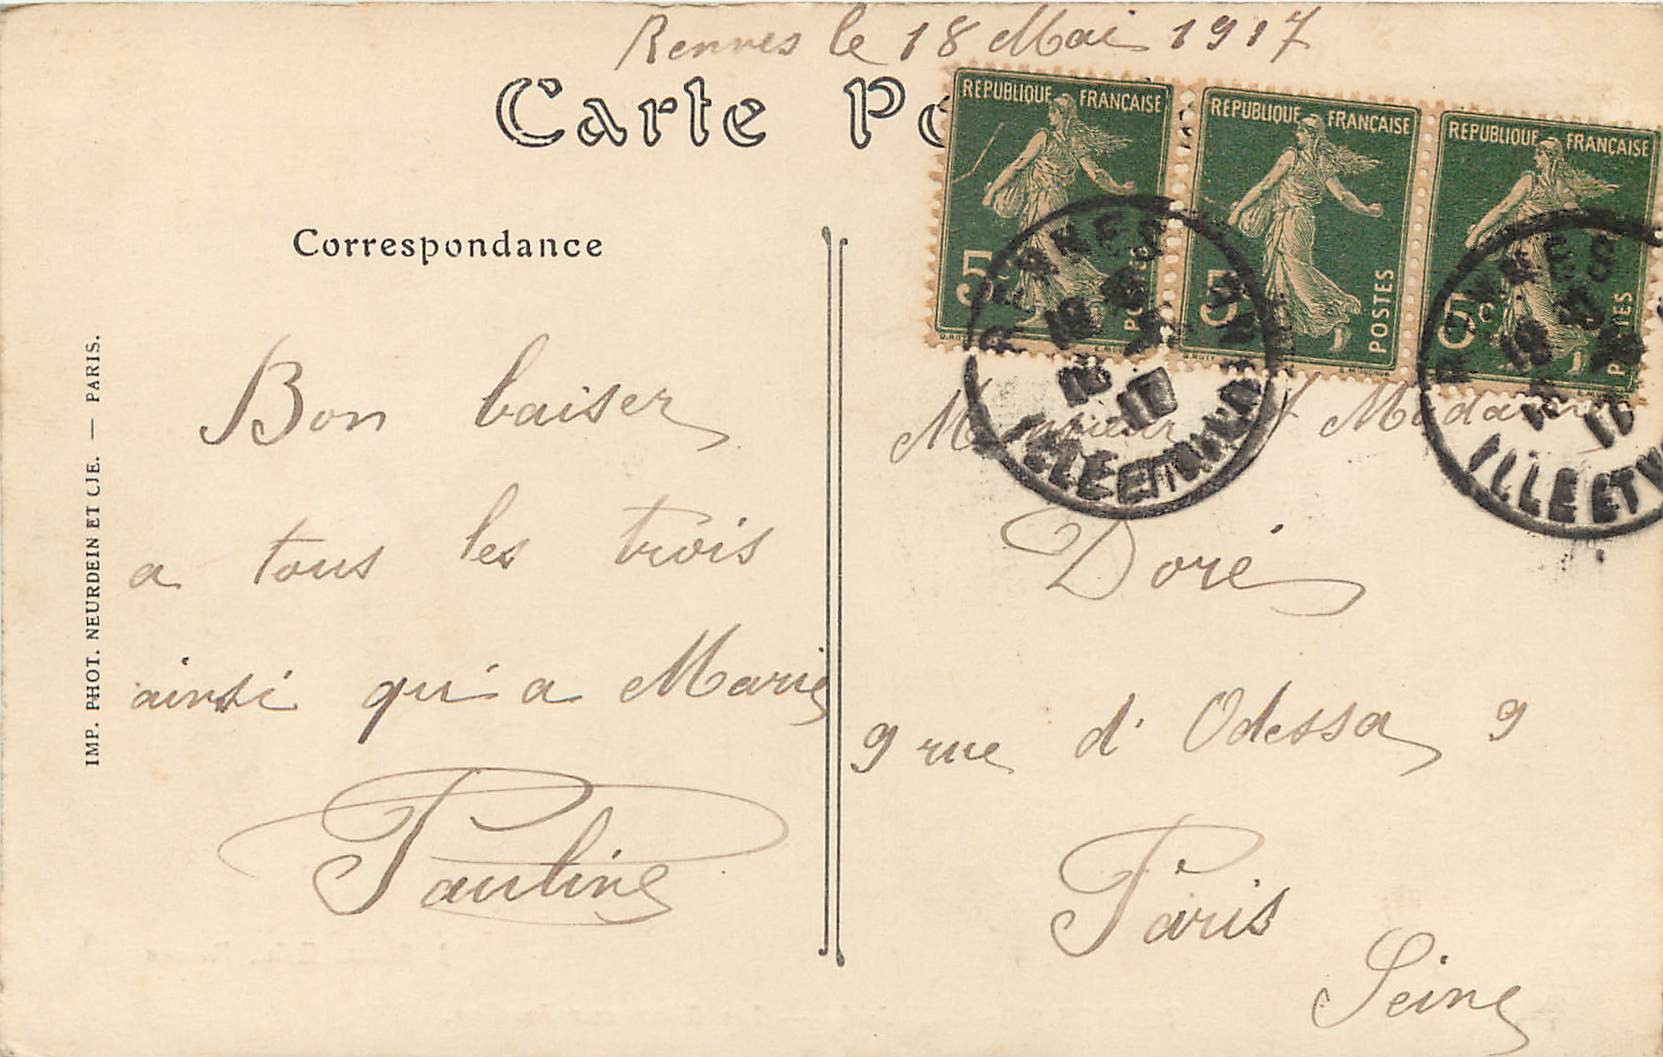 Rennes le 18 Mai 1917
Carte Po
REPUBLIQUE FRANÇAISE
5
POSTES
REPUBLIQUE FRANÇAISE
5
POSTES
REPUBLIQUE FRANÇAISE
5 c
POSTES
RENNES
ILLE ET VILAINE
RENNES
ILLE ET V
Correspondance
Bon baiser
a tous les trois
ainsi qu'a Marie
Pauline
Monsieur et Madame
Doré
9 rue d'Odessa 9
Paris
Seine
IMP. PHOT. NEURDEIN ET CIE. — PARIS.